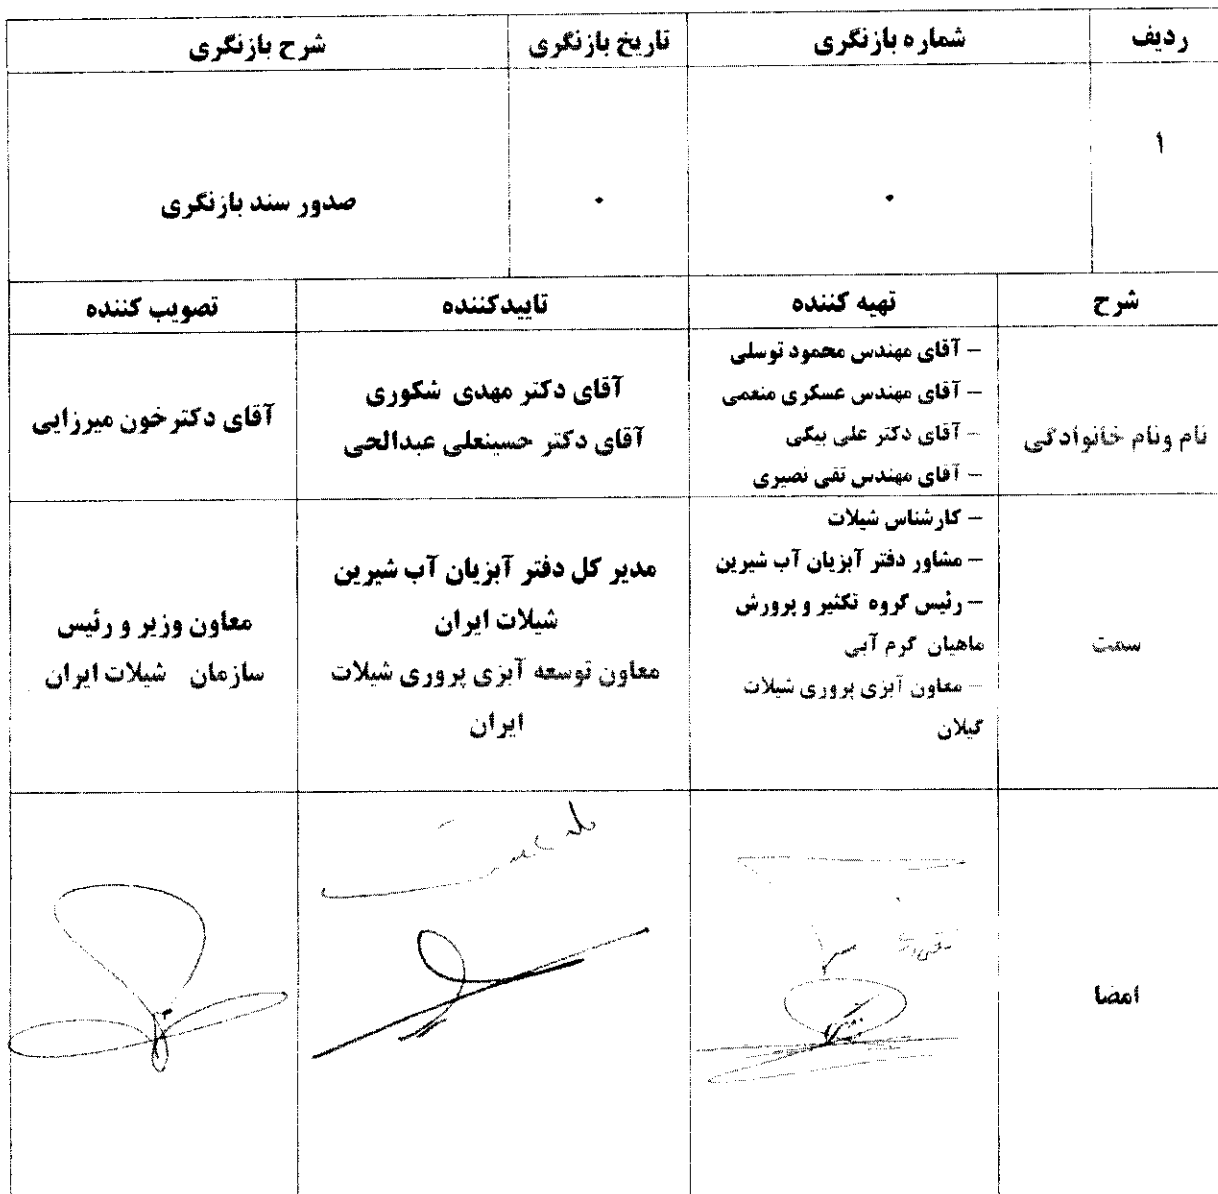 ردیف شماره بازنگری تاریخ بازنگری شرح بازنگری
۱ ۰ ۰ صدور سند بازنگری
شرح تهیه کننده تاییدکننده تصویب کننده
نام ونام خانوادگی
– آقای مهندس محمود توسلی
– آقای مهندس عسکری منعمی
– آقای دکتر علی بیگی
– آقای مهندس تقی نصیری
آقای دکتر مهدی شکوری
آقای دکتر حسینعلی عبدالحی
آقای دکترخون میرزایی
سمت
– کارشناس شیلات
– مشاور دفتر آبزیان آب شیرین
– رئیس گروه تکثیر و پرورش
ماهیان گرم آبی
– معاون آبزی پروری شیلات
گیلان
مدیر کل دفتر آبزیان آب شیرین
شیلات ایران
معاون توسعه آبزی پروری شیلات
ایران
معاون وزیر و رئیس
سازمان شیلات ایران
امضا